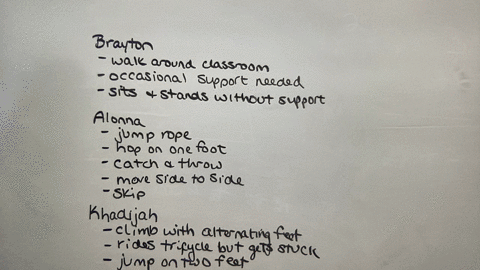 Brayton
- walk around classroom
- occasional support needed
- sits & stands without support
Alonna
- jump rope
- hop on one foot
- catch & throw
- move side to side
- skip
Khadijah
- climb with alternating feet
- rides tricycle but gets stuck
- jump on two feet